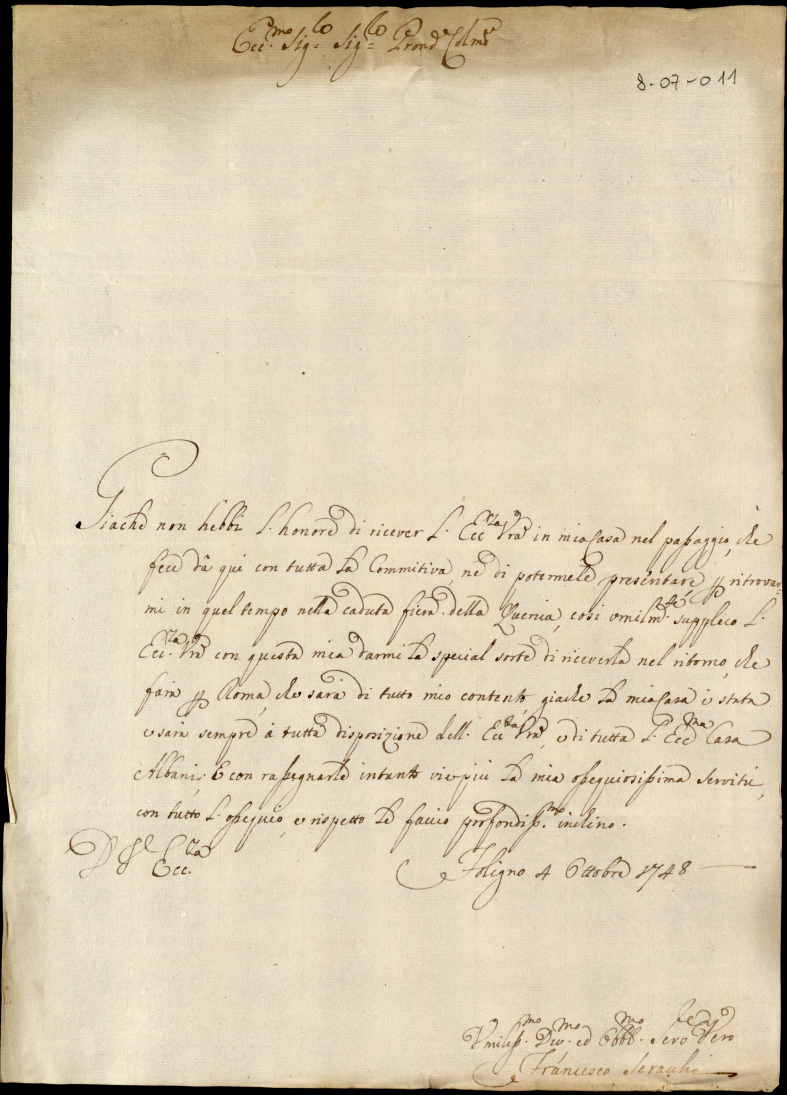 Ecc.mo Sig.re Sig.re Pron.e Colmo
8-07-011
Giache non hebbi l'honore di ricever l'Ecc.za Vra in mia Casa nel passaggio, che
fece da qui con tutta la Commitiva, ne di potermele presentare p ritrovar=
mi in quel tempo nella caduta fiera della Quercia, così umilm.te supplico l'
Ecc.za Vra con questa mia darmi la special sorte di riceverla nel ritorno, che
farà p Roma, che sarà di tutto mio contento, giache la mia Casa è stata
e sarà sempre à tutta disposizione dell'Ecc.za Vra, e di tutta l'Ecc.ma Casa
Albani. E con rassegnarle intanto vie più la mia ossequiosissima servitù,
con tutto l'ossequio, e rispetto le faccio profondiss.mo inchino.
D V.E Ecc.za
Foligno 4 Ottobre 1748
Vmiliss.mo Div.mo ed Obbl.mo Sero Vero
Francesco